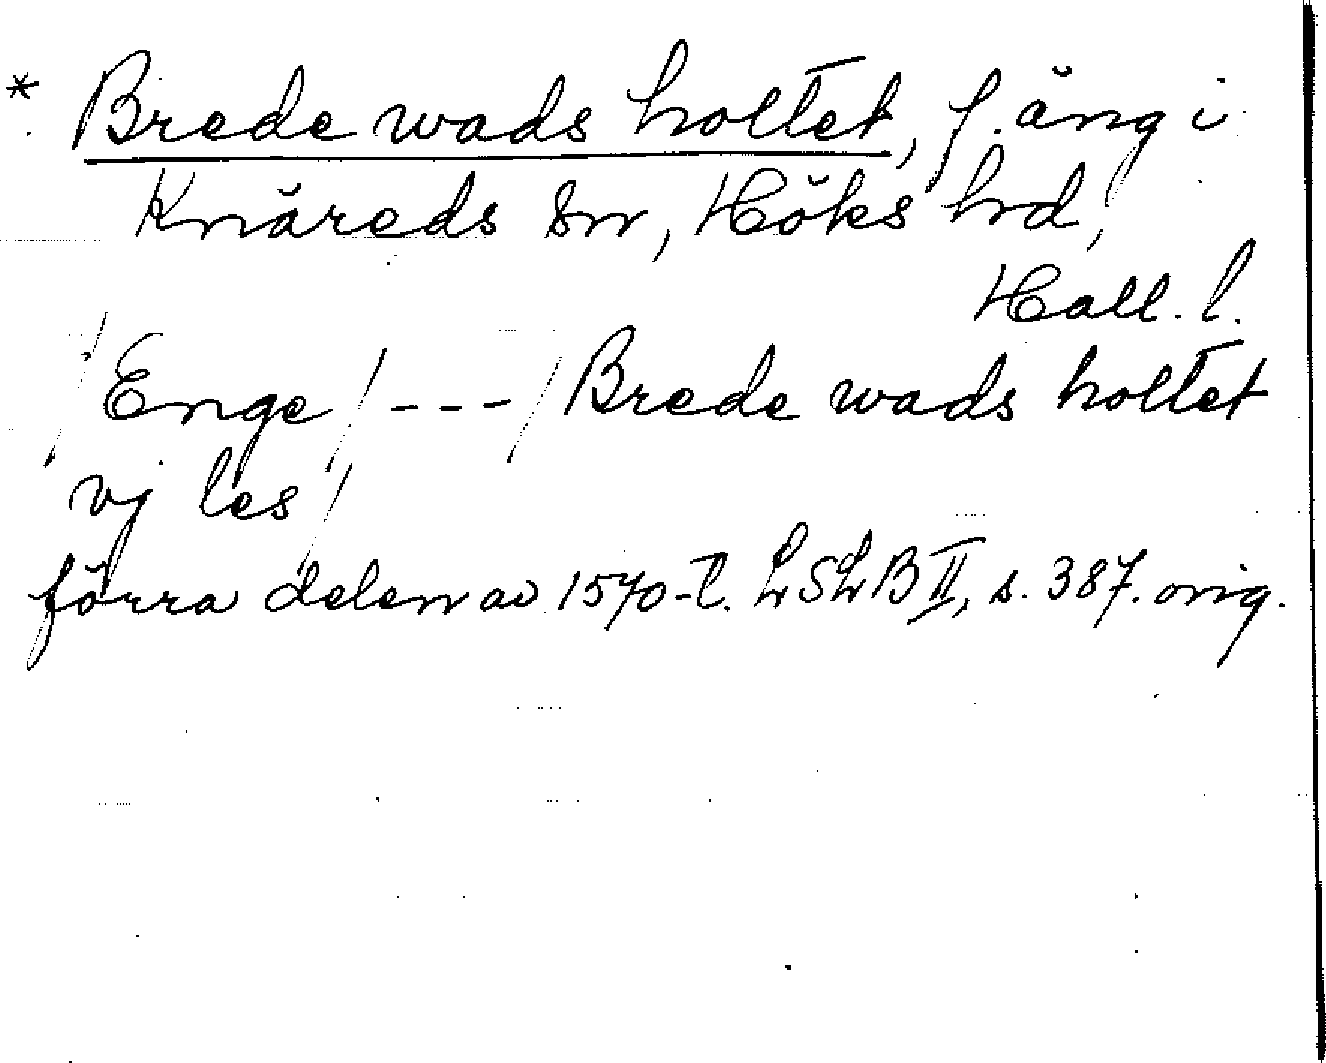 * Brede wads holtet, f. äng i
Knäreds sn, Höks hd,
Hall. l.
/Enge/ --- /Brede wads holtet
vj les/
förra delen av 1570-t. LSLB II, s. 387. orig.